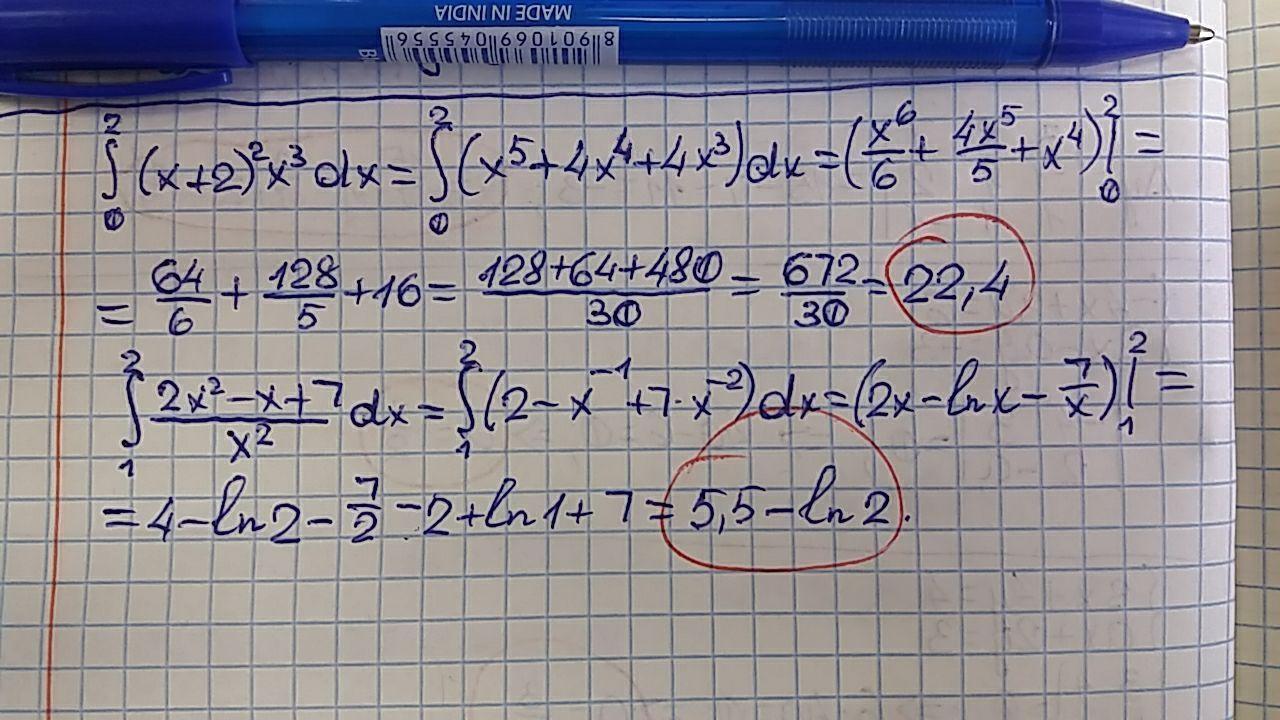 MADE IN INDIA
8 901069 045556
∫₀² (x+2)²x³dx = ∫₀² (x⁵+4x⁴+4x³)dx = (x⁶/6 + 4x⁵/5 + x⁴)|₀² =
= 64/6 + 128/5 + 16 = (128+64+480)/30 = 672/30 = 22,4
∫₁² (2x²-x+7)/x² dx = ∫₁² (2-x⁻¹+7·x⁻²)dx = (2x-ln x-7/x)|₁² =
= 4-ln2-7/2-2+ln1+7 = 5,5-ln2.